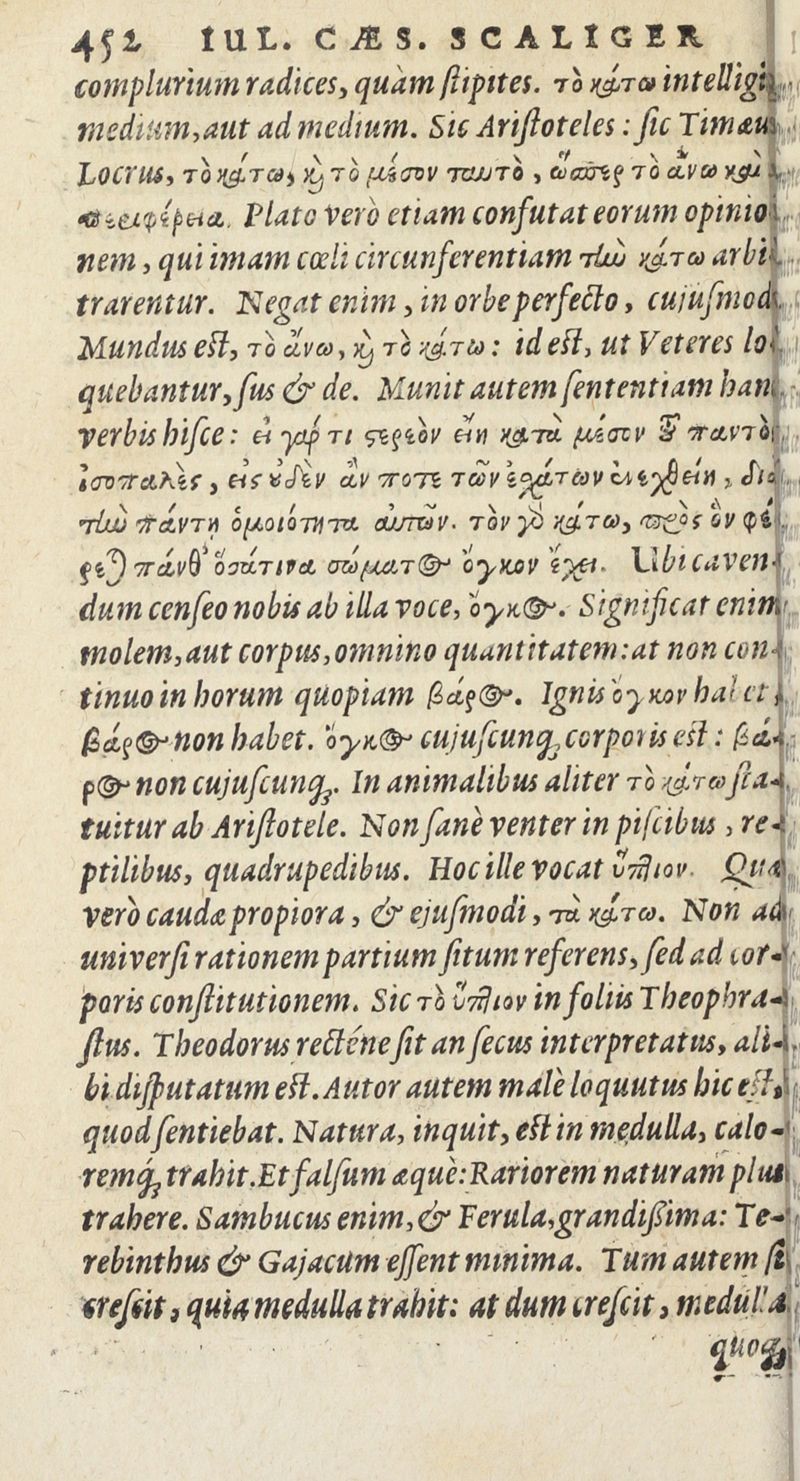 452 IUL. CÆS. SCALIGER
complurium radices, quàm ſtipites. τὸ κάτω intelligit
medium, aut ad medium. Sic Ariſtoteles: ſic Timæus
Locrus, τὸ κάτω, καὶ τὸ μέσον ταυτὸ, ὥσπερ τὸ ἄνω καὶ
περιφέρεια. Plato verò etiam confutat eorum opinio
nem, qui imam cœli circunferentiam τὴν κάτω arbi
trarentur. Negat enim, in orbe perfecto, cujuſmodi
Mundus est, τὸ ἄνω, καὶ τὸ κάτω: id est, ut Veteres lo
quebantur, ſus & de. Munit autem ſententiam hanc
verbis hiſce: εἰ γάρ τι στερεὸν εἴη κατὰ μέσον τοῦ παντὸς
ἰσοπαλὲς, εἰς οὐδὲν ἄν ποτε τῶν ἐσχάτων ἐνεχθείη, διὰ
τὴν πάντη ὁμοιότητα αὐτῶν. τὸν γὸ κάτω, πρὸς ὃν φέ
ρεται πάνθ' ὁσάτινα σώματος ὄγκον ἔχει. Ubi caven-
dum cenſeo nobis ab illa voce, ὄγκος. Significat enim
molem, aut corpus, omnino quantitatem: at non con-
tinuo in horum quopiam βάρος. Ignis ὄγκον habet,
βάρος non habet. ὄγκος cujuſcunq; corporis est: βά-
ρος non cujuſcunq;. In animalibus aliter τὸ κάτω ſta-
tuitur ab Ariſtotele. Non ſanè venter in piſcibus, re-
ptilibus, quadrupedibus. Hoc ille vocat ὕπτιον. Quæ
verò caudæ propiora, & ejuſmodi, τὰ κάτω. Non ad
univerſi rationem partium ſitum referens, ſed ad cor-
poris conſtitutionem. Sic τὸ ὕπτιον in foliis Theophra-
ſtus. Theodorus recténe ſit an ſecus interpretatus, ali-
bi diſputatum est. Autor autem malè loquutus hic est,
quod ſentiebat. Natura, inquit, est in medulla, calo-
remq́; trahit. Et falſum æquè: Rariorem naturam plus
trahere. Sambucus enim, & Ferula, grandiſſima: Te-
rebinthus & Gajacum eſſent minima. Tum autem ſi
creſcit, quia medulla trahit: at dum creſcit, medulla
quoq;